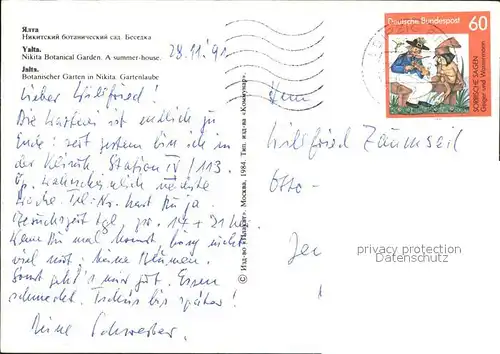 Ялта
Никитский ботанический сад. Беседка
Yalta.
Nikita Botanical Garden. A summer-house.
Jalta.
Botanischer Garten in Nikita. Gartenlaube
28.11.91
Lieber Wilfried!
Die Warterei ist endlich zu
Ende: seit gestern bin ich in
der Klinik, Station IV / 113.
Op. wahrscheinlich nächste
Woche. Tel.-Nr. hast Du ja.
Besuchszeit tgl. zw. 17 + 21 Uhr.
Wenn Du mal kommst, bring nicht
viel mit: keine Blumen.
Sonst geht's mir gut. Essen
schmeckt. Tschüs bis später!
Deine Schwester.
© Изд-во «Планета». Москва, 1984. Тип. изд-ва «Коммунар».
Deutsche Bundespost 60
SORBISCHE SAGEN
Geiger und Wassermann
Herrn
Wilfried Zäumseil
Otto-
Jen
privacy protection
GDPR